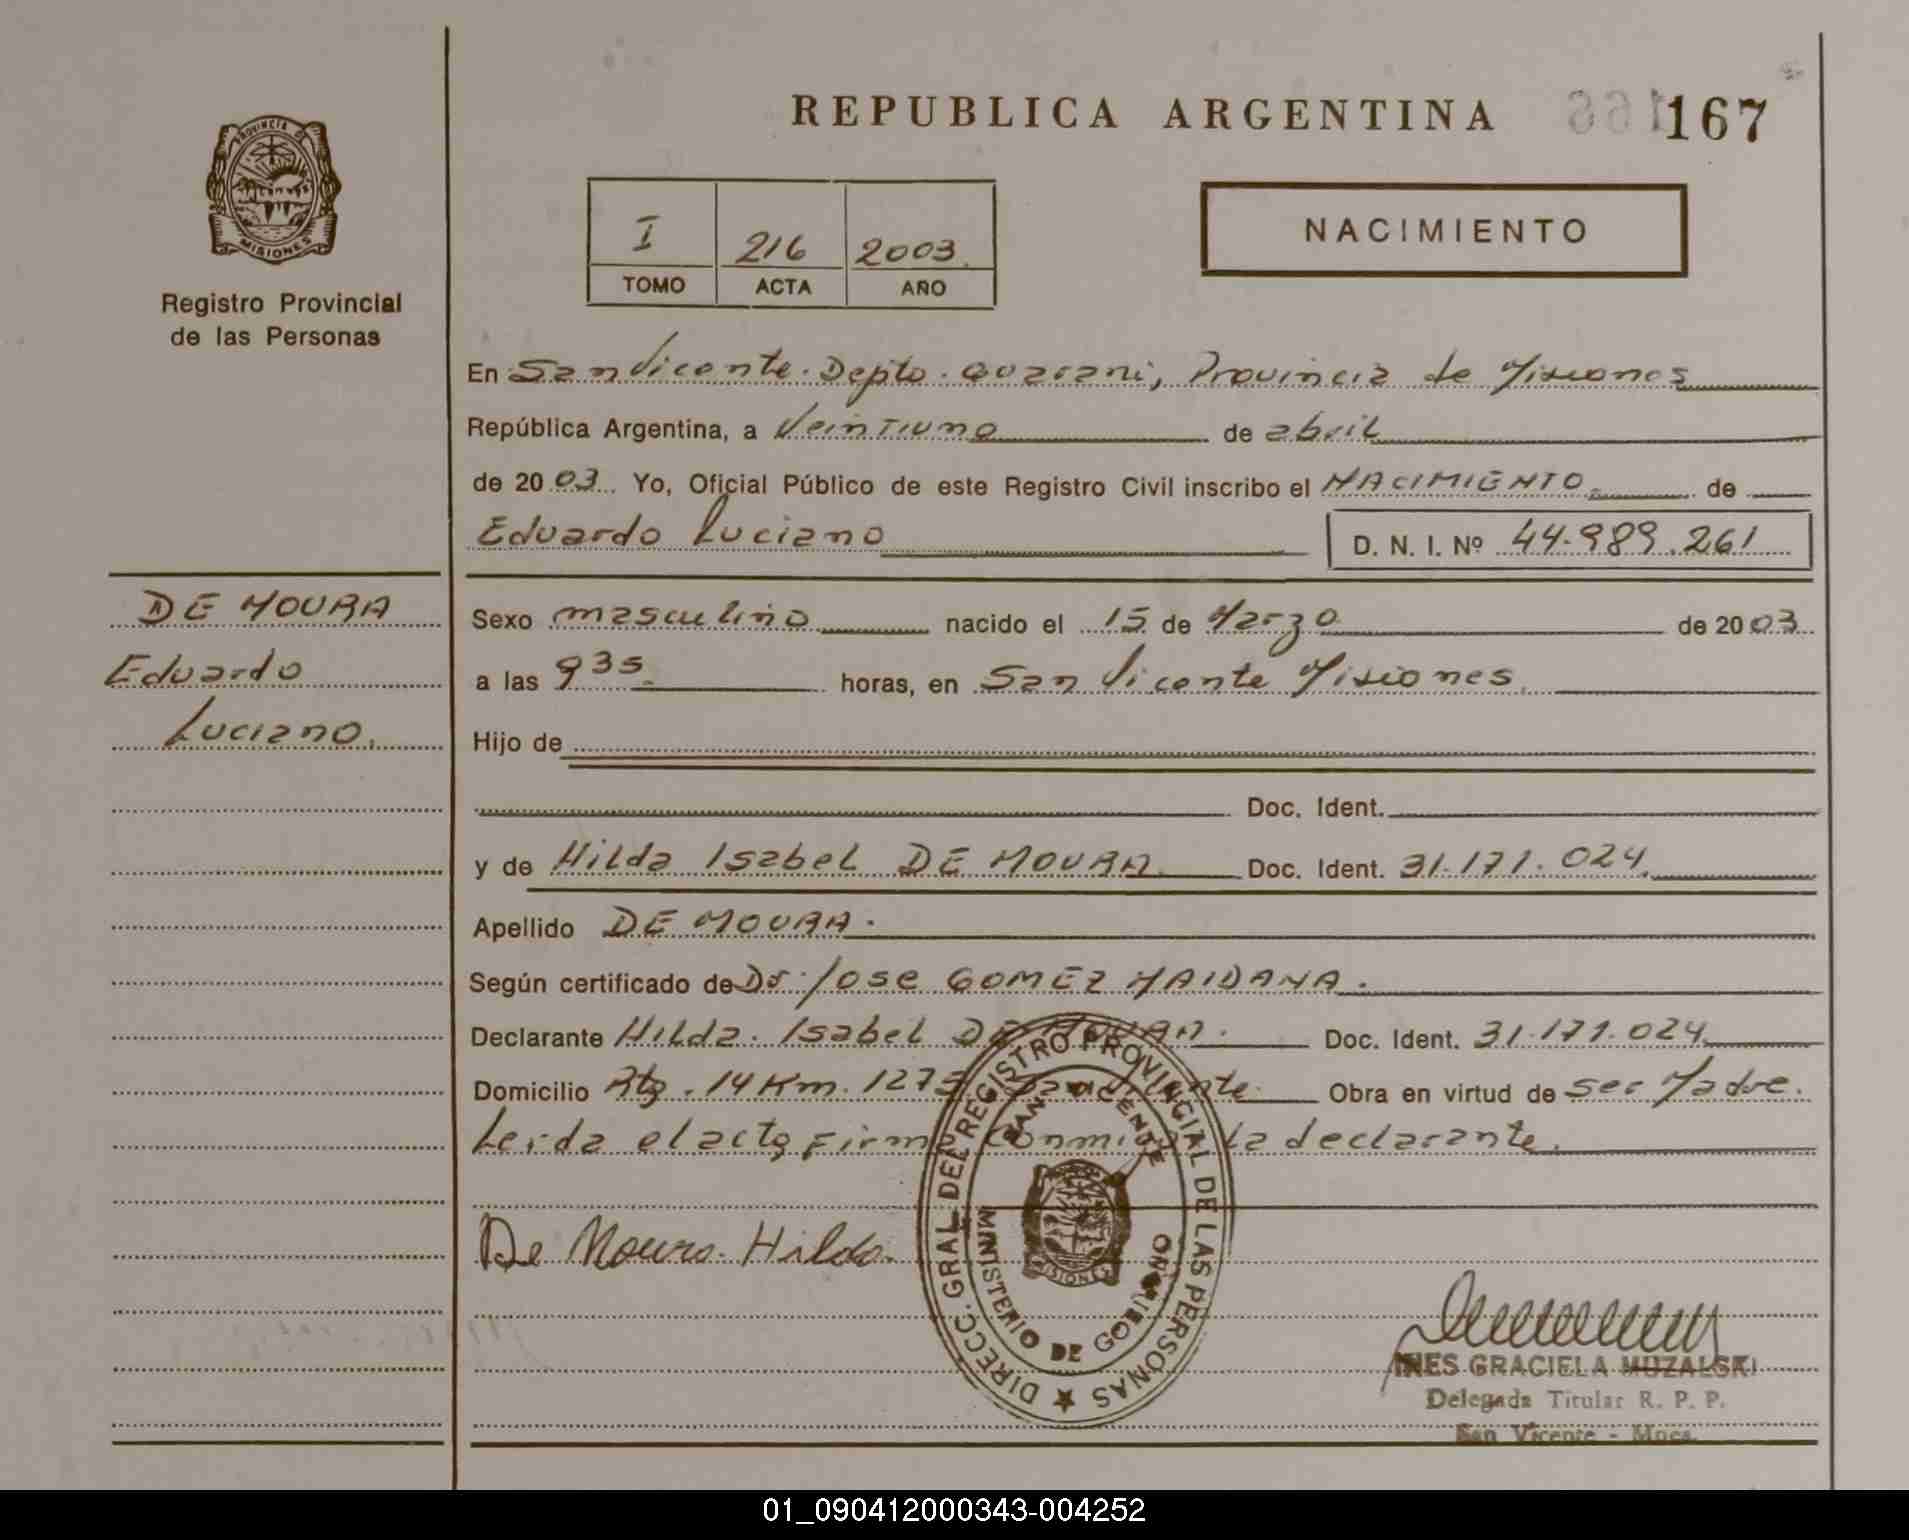 REPUBLICA ARGENTINA 167
PROVINCIA DE
MISIONES
Registro Provincial
de las Personas
I 216 2003
TOMO ACTA AÑO
NACIMIENTO
En San Vicente. Depto. Guarani, Provincia de Misiones
República Argentina, a Veintiuno de abril
de 20 03 Yo, Oficial Público de este Registro Civil inscribo el NACIMIENTO. de
Eduardo Luciano D. N. I. Nº 44.989.261
DE MOURA
Eduardo
Luciano.
Sexo masculino nacido el 15 de Marzo de 20 03
a las 9 35. horas, en San Vicente Misiones.
Hijo de
Doc. Ident.
y de Hilda Isabel DE MOURA Doc. Ident. 31.171.024.
Apellido DE MOURA.
Según certificado de Dr. Jose GOMEZ MAIDANA.
Declarante Hilda. Isabel DE MOURA. Doc. Ident. 31.171.024
Domicilio Rta. 14 Km. 1275 San Vicente. Obra en virtud de ser Madre.
Leida el acta, firma conmigo la declarante.
De Moura Hilda.
DIRECC. GRAL. DEL REGISTRO PROVINCIAL DE LAS PERSONAS
SAN VICENTE
MISIONES
MINISTERIO DE GOBIERNO
INES GRACIELA MUZALSKI
Delegada Titular R. P. P.
San Vicente - Mnes.
01_090412000343-004252